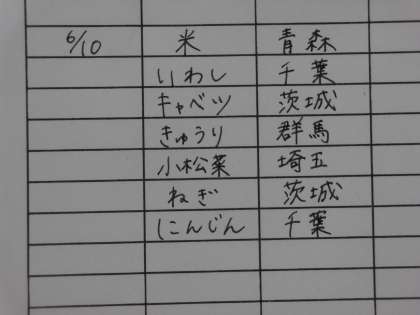 6/10 米 青森
いわし 千葉
キャベツ 茨城
きゅうり 群馬
小松菜 埼玉
ねぎ 茨城
にんじん 千葉